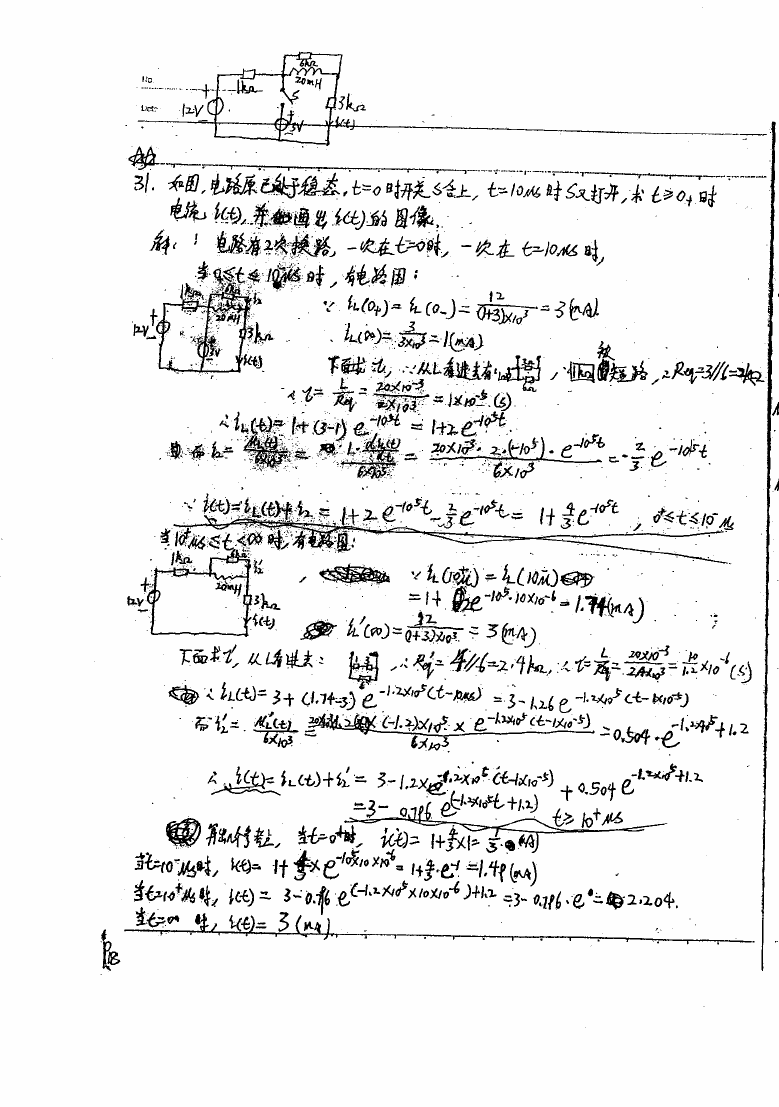 No.
Date
12V
1kΩ
6kΩ
20mH
S
3V
3kΩ
i(t)
31. 如图,电路原已处于稳态,t=0时开关S合上,t=10μs时S又打开,求t≥0+时
电流i(t),并画出i(t)的图像.
解: 电路有2次换路,一次在t=0时,一次在t=10μs时,
当0≤t≤10μs时,有电路图:
1kΩ
20mH
12V
3V
3kΩ
i(t)
∵ iL(0+)=iL(0-)=12/(1+3)×10³=3(mA)
iL(∞)=3/3×10³=1(mA)
下面求τ, ∵从L看进去有: 被短路, ∴Req=3//6=2kΩ
∴τ=L/Req=20×10⁻³/2×10³=1×10⁻⁵(s)
∴iL(t)=1+(3-1)e^-10⁵t=1+2e^-10⁵t
而i2= = L·diL(t)/dt / 6×10³ = 20×10⁻³·2·(-10⁵)·e^-10⁵t / 6×10³ = -2/3 e^-10⁵t
∵i(t)=iL(t)+i2=1+2e^-10⁵t-2/3e^-10⁵t=1+4/3e^-10⁵t, 0+≤t≤10⁻μs
当10+μs≤t<∞时,有电路图:
1kΩ
20mH
i2'
12V
3kΩ
i(t)
∵iL(10+μ)=iL(10-μ)
=1+2e^-10⁵·10×10⁻⁶=1.74(mA)
iL'(∞)=12/(1+3)×10³=3(mA)
下面求τ', 从L看进去: ∴Req'=4//6=2.4kΩ, ∴τ=L/Req=20×10⁻³/2.4×10³=10/1.2×10⁻⁶(s)
∴iL(t)=3+(1.74-3)e^-1.2×10⁵(t-10μs)=3-1.26e^-1.2×10⁵(t-1×10⁻⁵)
而i2'=uL'(t)/6×10³= ×(-1.2)×10⁵×e^-1.2×10⁵(t-1×10⁻⁵)/6×10³=0.504·e^-1.2×10⁵+1.2
∴i(t)=iL(t)+i2'=3-1.2×e^-1.2×10⁵(t-1×10⁻⁵)+0.504e^-1.2×10⁵+1.2
=3-0.796e^(-1.2×10⁵t+1.2) t≥10+μs
算出几个参考点, 当t=0+时, i(t)=1+4/3×1= (mA)
当t=10⁻μs时, i(t)=1+4/3×e^-10⁵×10×10⁻⁶=1+4/3·e⁻¹=1.49(mA)
当t=10+μs时, i(t)=3-0.796e^(-1.2×10⁵×10×10⁻⁶)+1.2=3-0.796·e⁰=2.204.
当t=∞时, i(t)=3(mA)